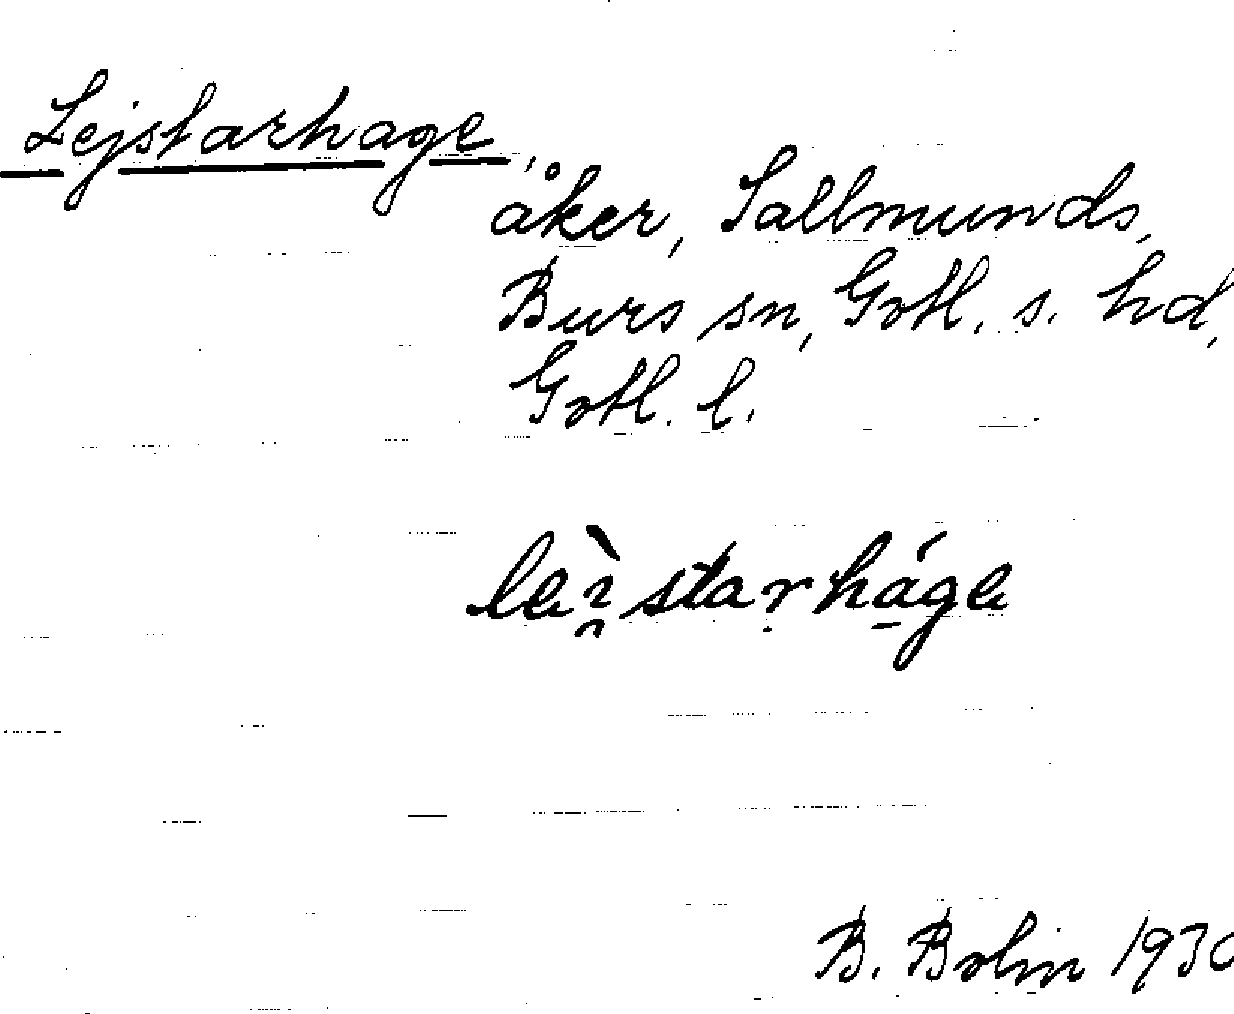 Lejstarhage,
åker, Sallmunds,
Burs sn, Gotl. s. hd,
Gotl. l.
B. Bolin 1930